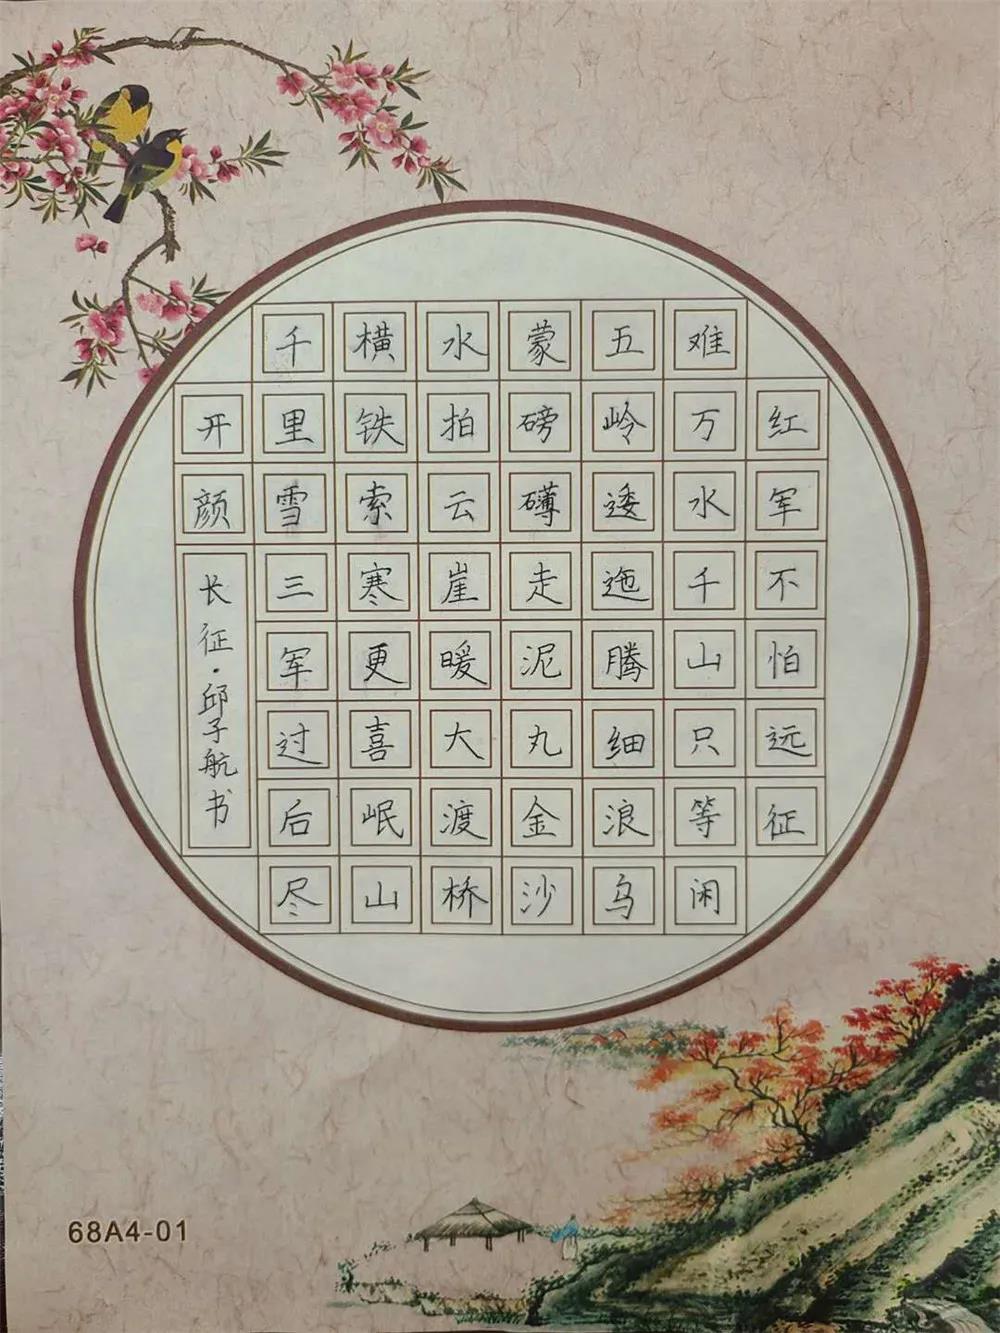 红军不怕远征
难万水千山只等闲
五岭逶迤腾细浪乌
蒙磅礴走泥丸金沙
水拍云崖暖大渡桥
横铁索寒更喜岷山
千里雪三军过后尽
开颜
长征·邱子航书
68A4-01